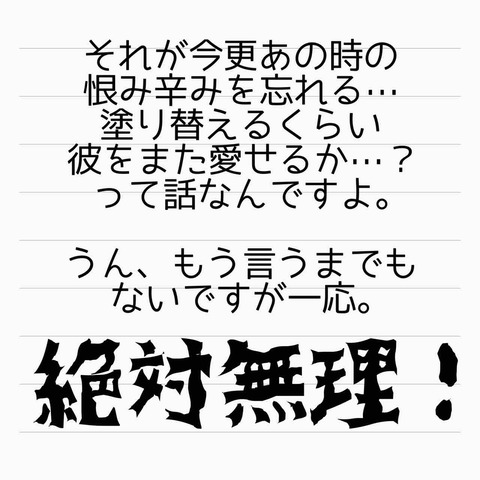 それが今更あの時の
恨み辛みを忘れる…
塗り替えるくらい
彼をまた愛せるか…？
って話なんですよ。
うん、もう言うまでも
ないですが一応。
絶対無理！